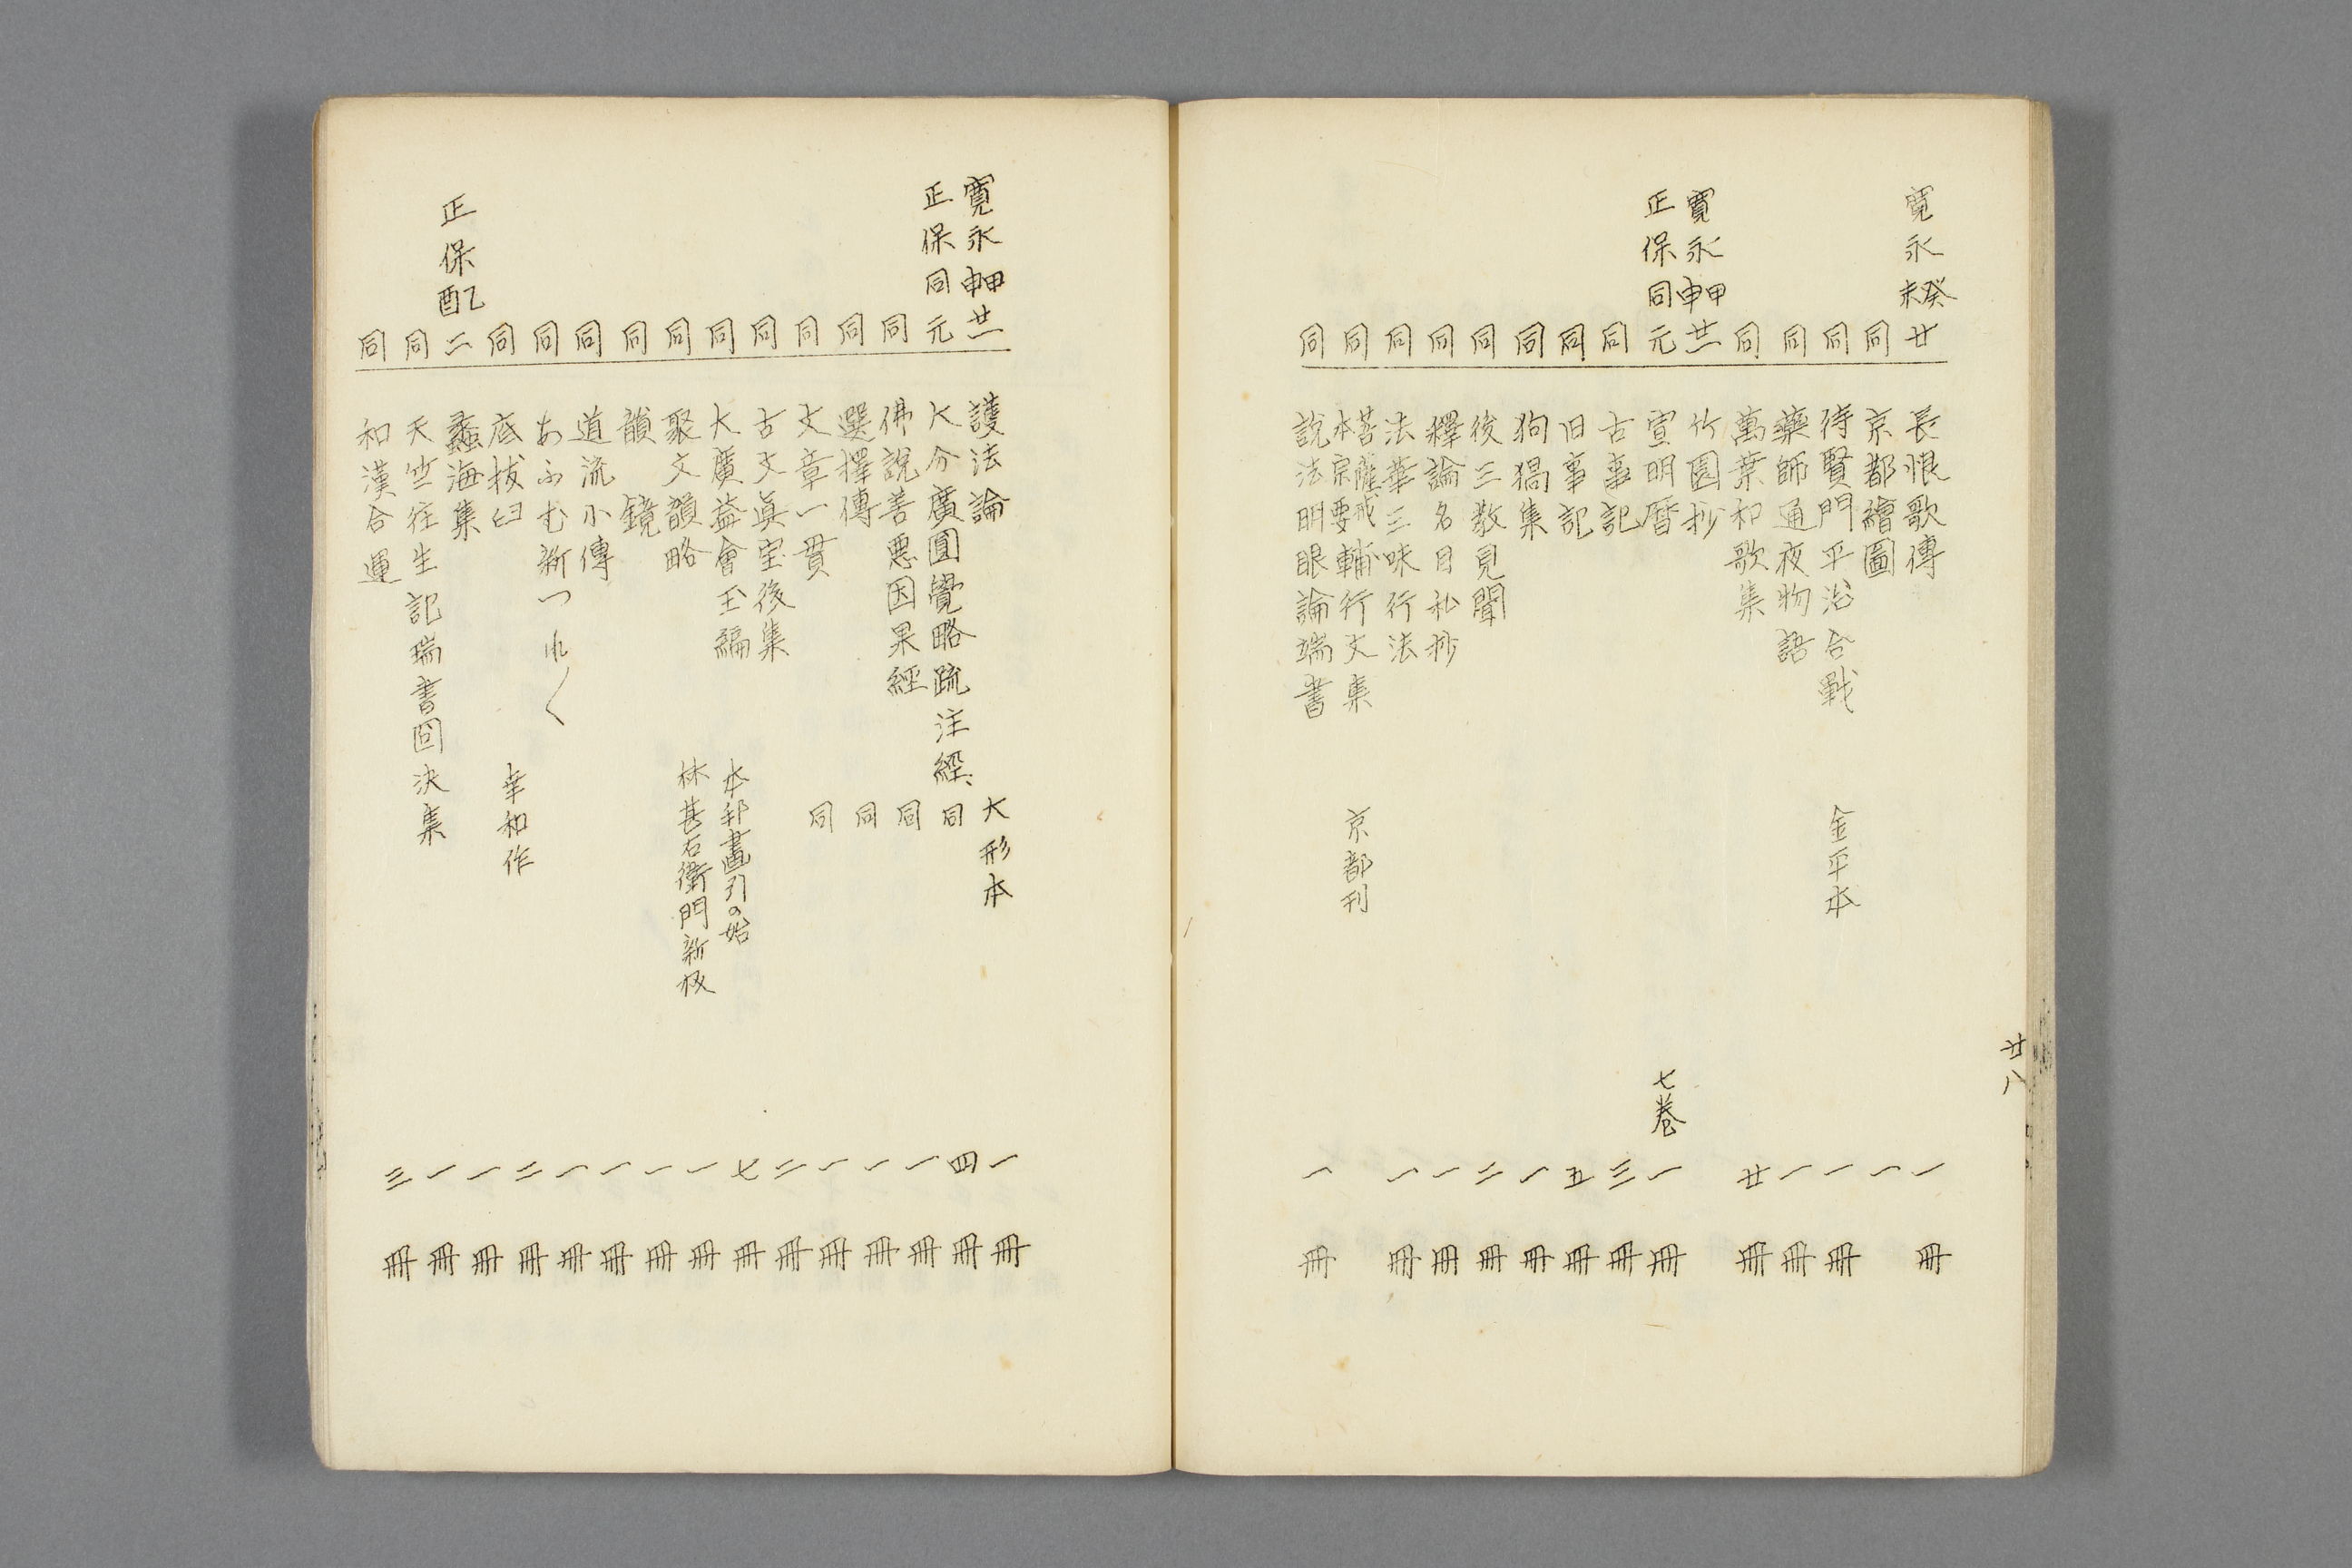 廿八
寛永癸未廿 長恨歌傳 一冊
同 京都繪圖 一
同 待賢門平治合戰 金平本 一冊
同 藥師通夜物語 一冊
同 萬葉和歌集 廿冊
寛永甲申廿一 竹園抄
正保同元 宣明暦 七巻 一冊
同 古事記 三冊
同 旧事記 五冊
同 狗猧集 一冊
同 後三教見聞 二冊
同 釋論名目私抄 一冊
同 法華三昧行法 一冊
同 菩薩戒本宗要輔行文集 京都刊
同 説法明眼論端書 一冊
寛永甲申廿一 護法論 大形本 一冊
正保同元 大分廣圓覺略疏注經 同 四冊
同 佛説善悪因果經 同 一冊
同 選擇傳 同 一冊
同 文章一貫 同 一冊
同 古文眞宝後集 二冊
同 大廣益會玉編 本邦畫引の始 七冊
同 聚文韻略 林甚右衛門新板 一冊
同 韻鏡 一冊
同 道流小傳 一冊
同 あふむ新つれ〱 一冊
同 底抜臼 幸和作 二冊
正保乙酉二 蠡海集 一冊
同 天竺往生記瑞書図決集 一冊
同 和漢合運 三冊